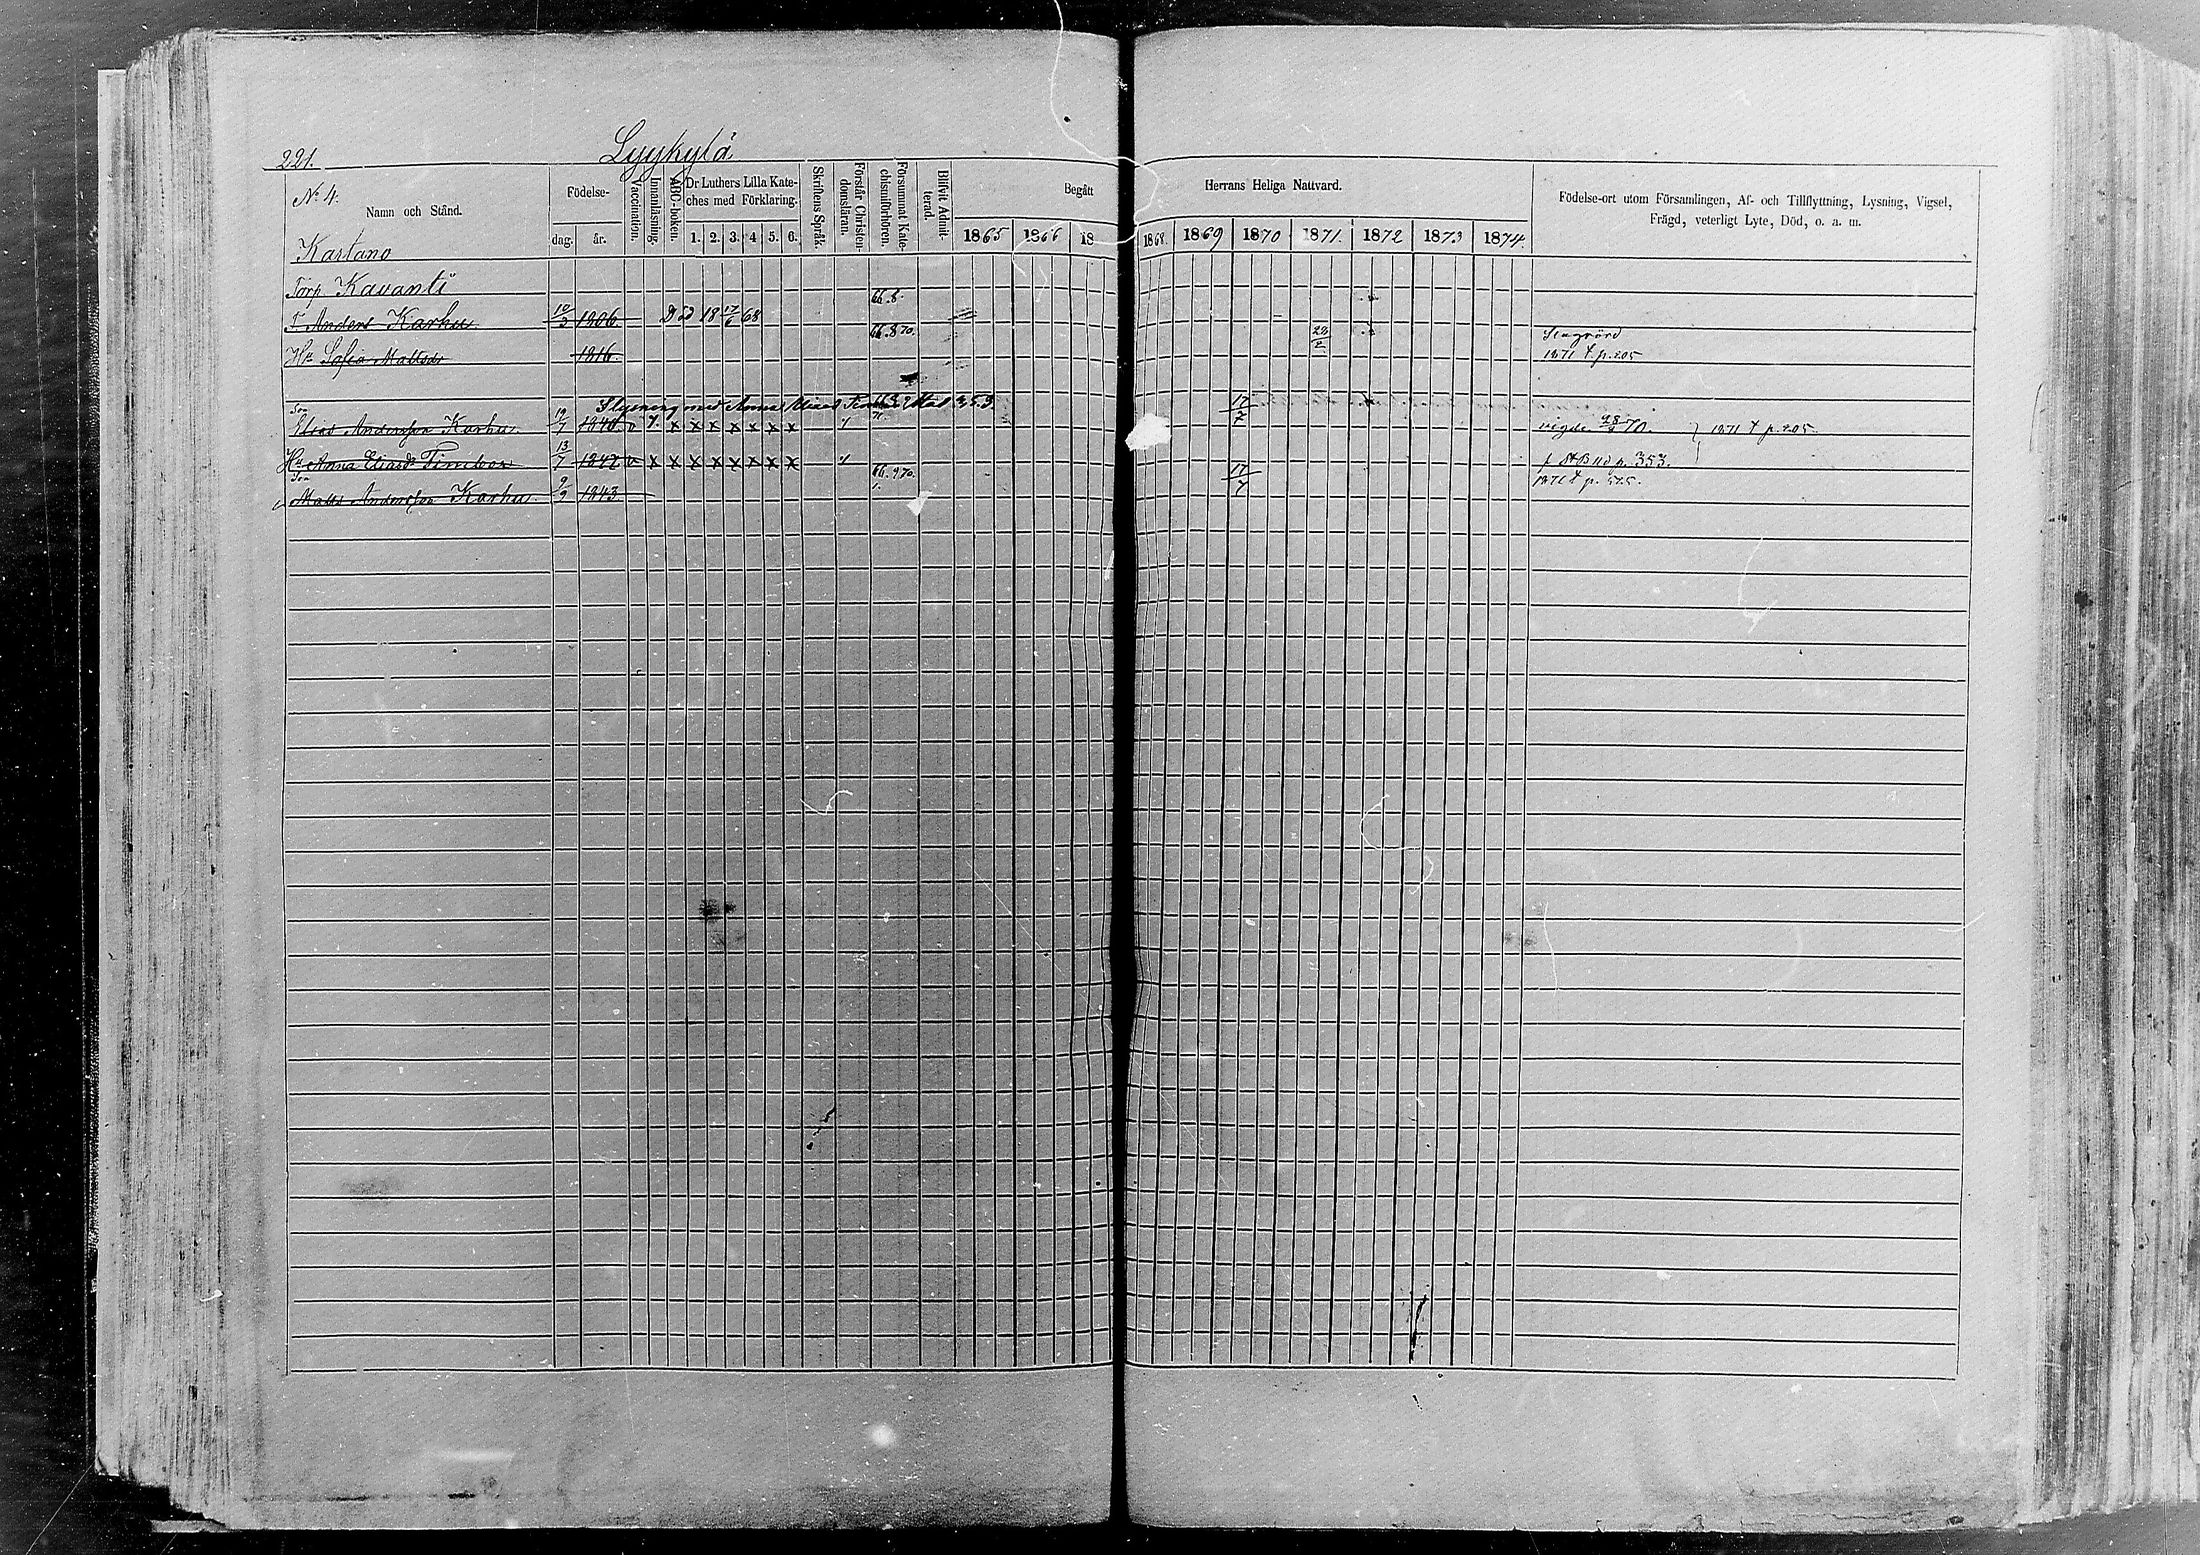 221. Lyykylä
No 4.
Namn och Stånd.
Födelse-
dag. år.
Vaccination.
Innanläsning.
ABC-boken.
Dr Luthers Lilla Kate-
ches med Förklaring.
1. 2. 3. 4 5. 6.
Skriftens Språk
Förstår Christen-
domsläran.
Försummat Kate-
chismiförhören.
Blifvit Admit-
terad.
Begått Herrans Heliga Nattvard.
1865 1866 18 1868. 1869 1870 1871. 1872 1873 1874.
Födelse-ort utom Församlingen, Af- och Tillflyttning, Lysning, Vigsel,
Frägd, veterligt Lyte, Död, o. a. m.
Kartano
Torp Kavanti
66.8.
T. Anders Karhu 10/3 1806. Död 18 17/6 68
66.8 70. 28/2
Hu Sofia Mattsdr 1816. 1871 f p.205
Slysning med Anna
Son
Elias Andersson Karhu 19/7 1840. x x x x x x x 17/7 vigde 70. 1871 f p.205.
Hu Anna Eliasdr Timbor 13/7 1842 x x x x x x x x p. 353.
Son
Matts Andersson Karhu 9/9 1843 66. 9 70. 17/7 1871 f p. 575.